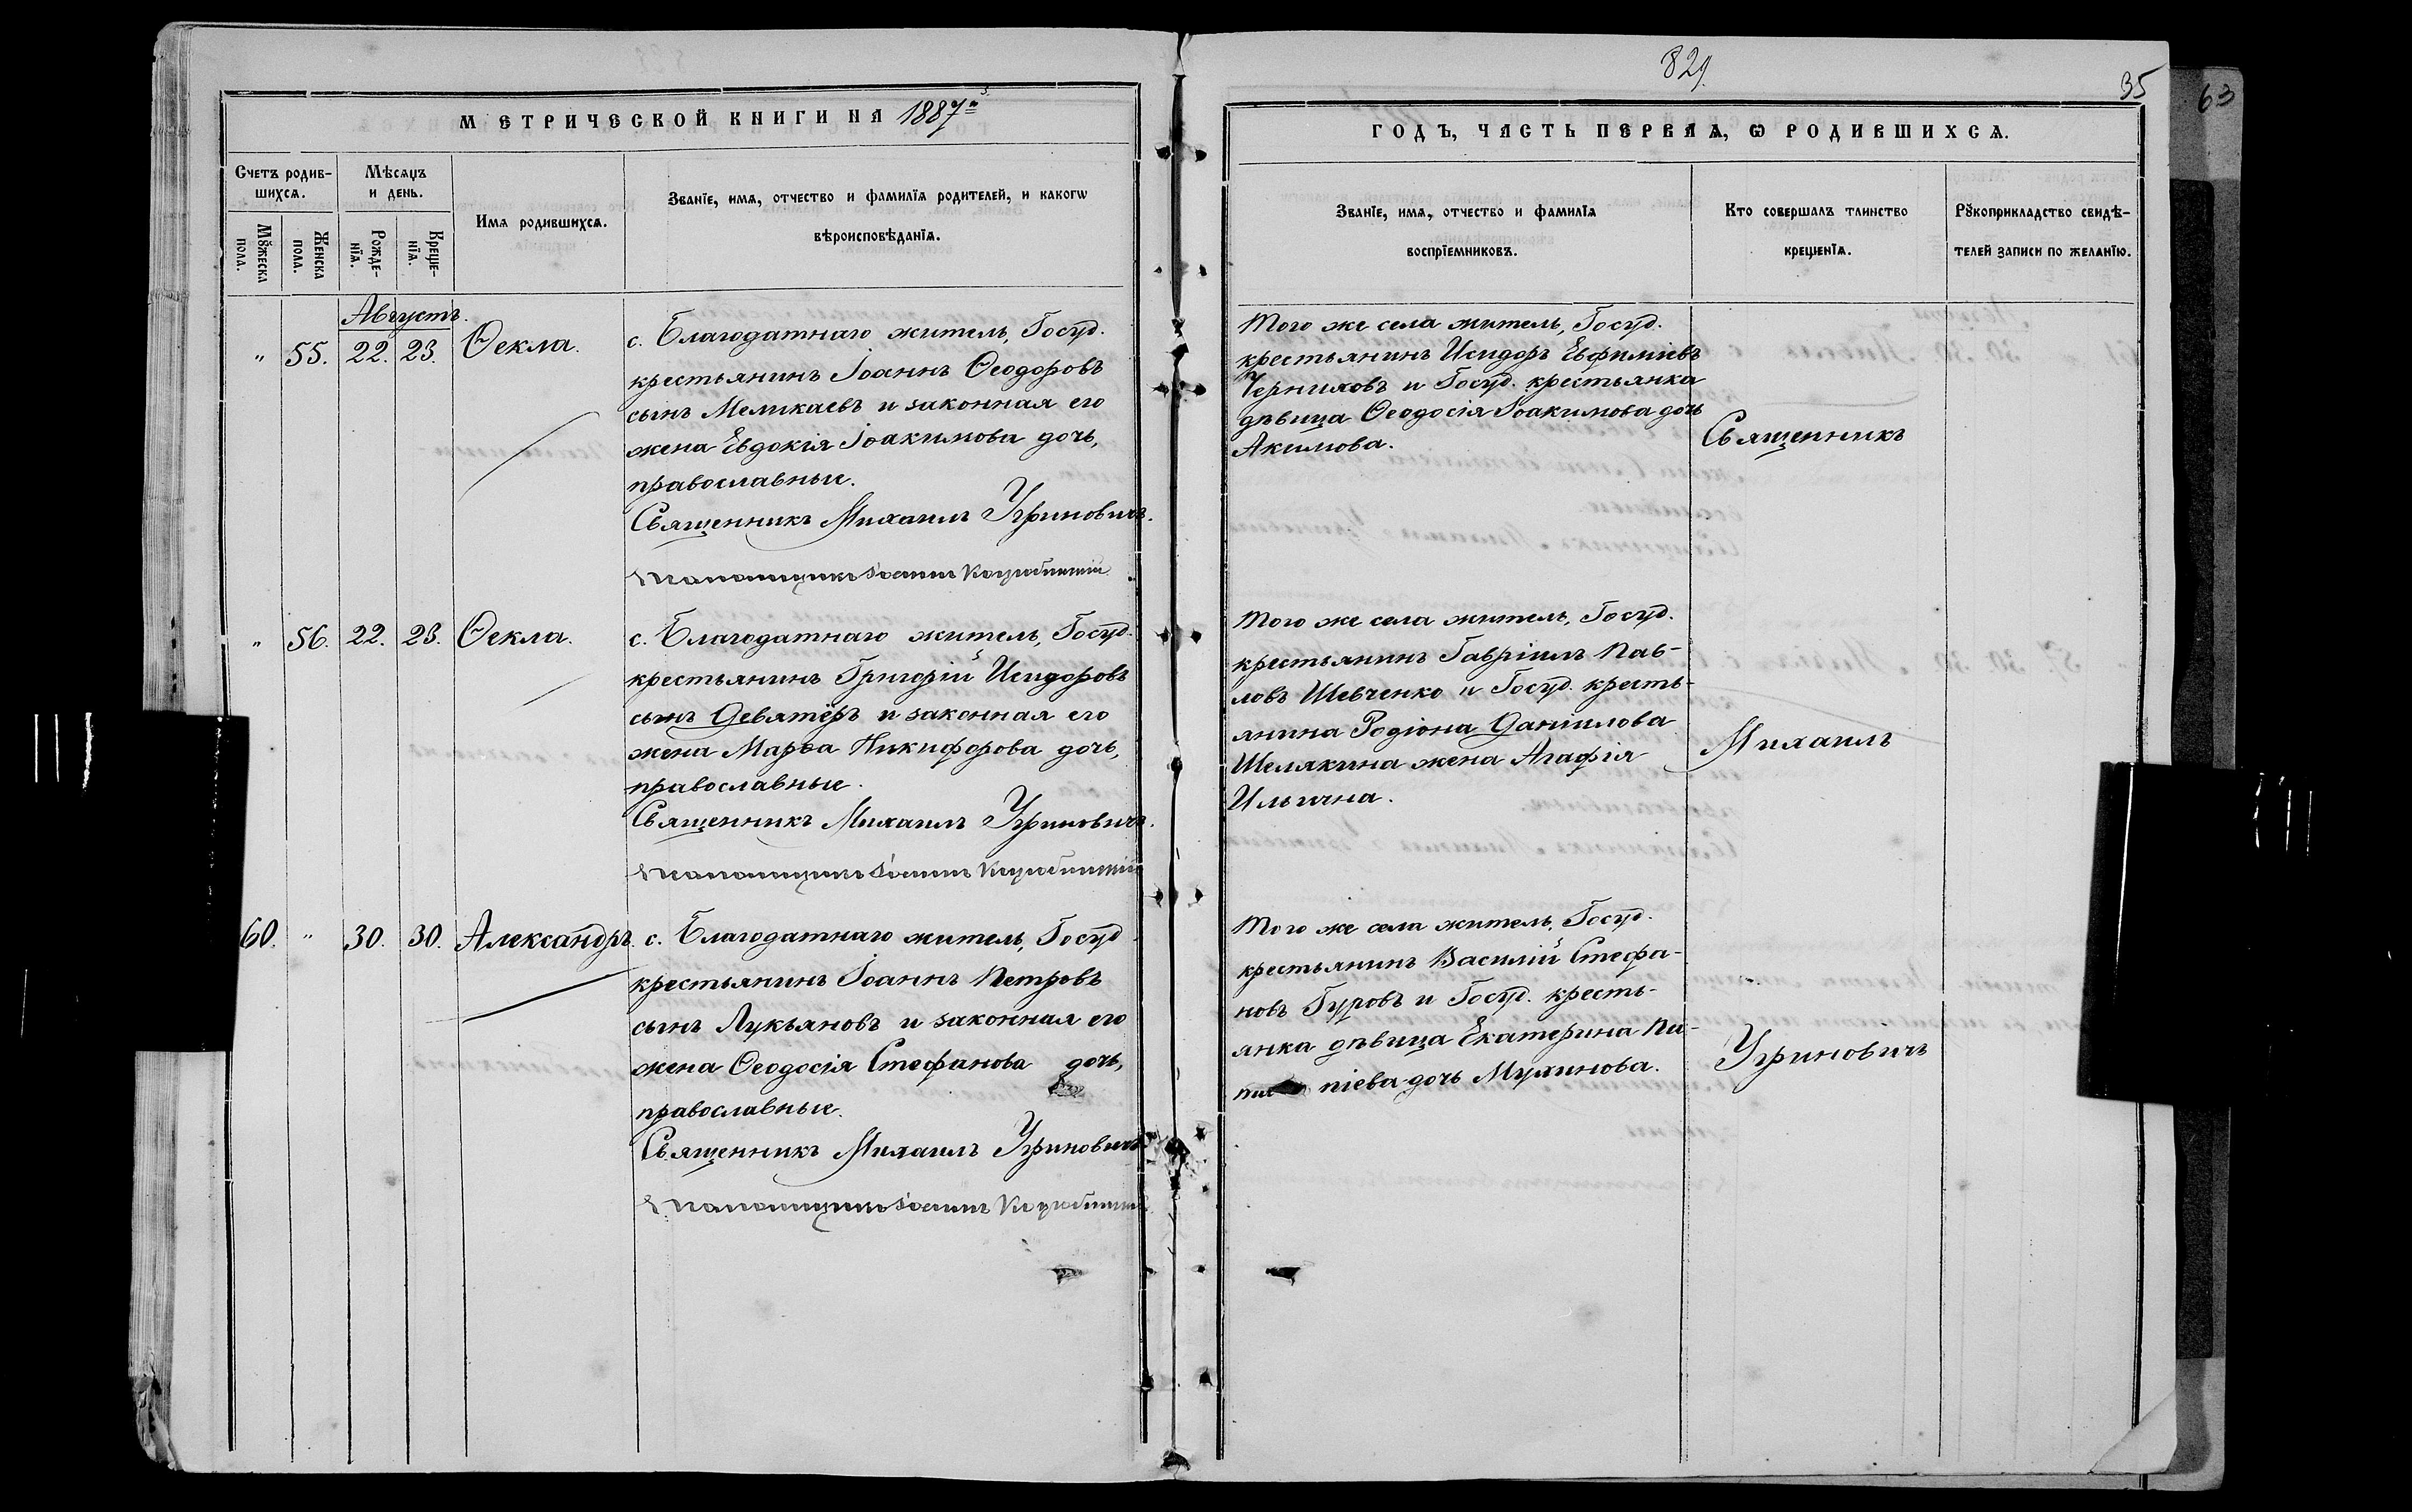 829.
35
63
МЕТРИЧЕСКОЙ КНИГИ НА 1887й
ГОДЪ, ЧАСТЬ ПЕРВАЯ, Ѡ РОДИВШИХСЯ.
Счетъ родив-
шихсѧ.
Мꙋжеска
пола.
Женска
пола.
Мѣсяцъ
и день.
Рожде-
нїя.
Креще-
нїя.
Имѧ родившихсѧ.
Званїе, имѧ, отчество и фамилїѧ родителей, и какогѡ
вѣроисповѣданїѧ.
Званїе, имѧ, отчество и фамилїѧ
воспрїемниковъ.
Кто совершалъ таинство
крещенїѧ.
Рꙋкоприкладство свидѣ-
телей записи по желанїю.
Августъ.
" 55. 22. 23. Ѳекла.
с. Благодатнаго житель, Госуд.
крестьянинъ Іоаннъ Ѳеодоровъ
сынъ Меликаевъ и законная его
жена Евдокія Іоакимова дочь,
православные.
Священникъ Михаилъ Угриновичъ.
Псаломщикъ Іоаннъ
Того же села житель, Госуд.
крестьянинъ Исидоръ Евфиміевъ
Черниковъ и Госуд. крестьянка
дѣвица Ѳеодосія Іоакимова дочь
Акимова.
Священникъ
" 56. 22. 23. Ѳекла.
с. Благодатнаго житель, Госуд.
крестьянинъ Григорій Исидоровъ
сынъ Девятёръ и законная его
жена Марѳа Никифорова дочь,
православные.
Священникъ Михаилъ Угриновичъ.
Псаломщикъ Іоаннъ
Того же села житель, Госуд.
крестьянинъ Гавріилъ Пав-
ловъ Шевченко и Госуд. кресть-
янина Родіона Даніилова
Шелякина жена Агафія
Ильична.
Михаилъ
60. " 30. 30. Александръ.
с. Благодатнаго житель, Госуд.
крестьянинъ Іоаннъ Петровъ
сынъ Лукьяновъ и законная его
жена Ѳеодосія Стефанова дочь,
православные.
Священникъ Михаилъ Угриновичъ
Псаломщикъ Іоаннъ
Того же села житель, Госуд.
крестьянинъ Василій Стефа-
новъ Гуровъ и Госуд. кресть-
янка дѣвица Екатерина
дочь Мухинова.
Угриновичъ